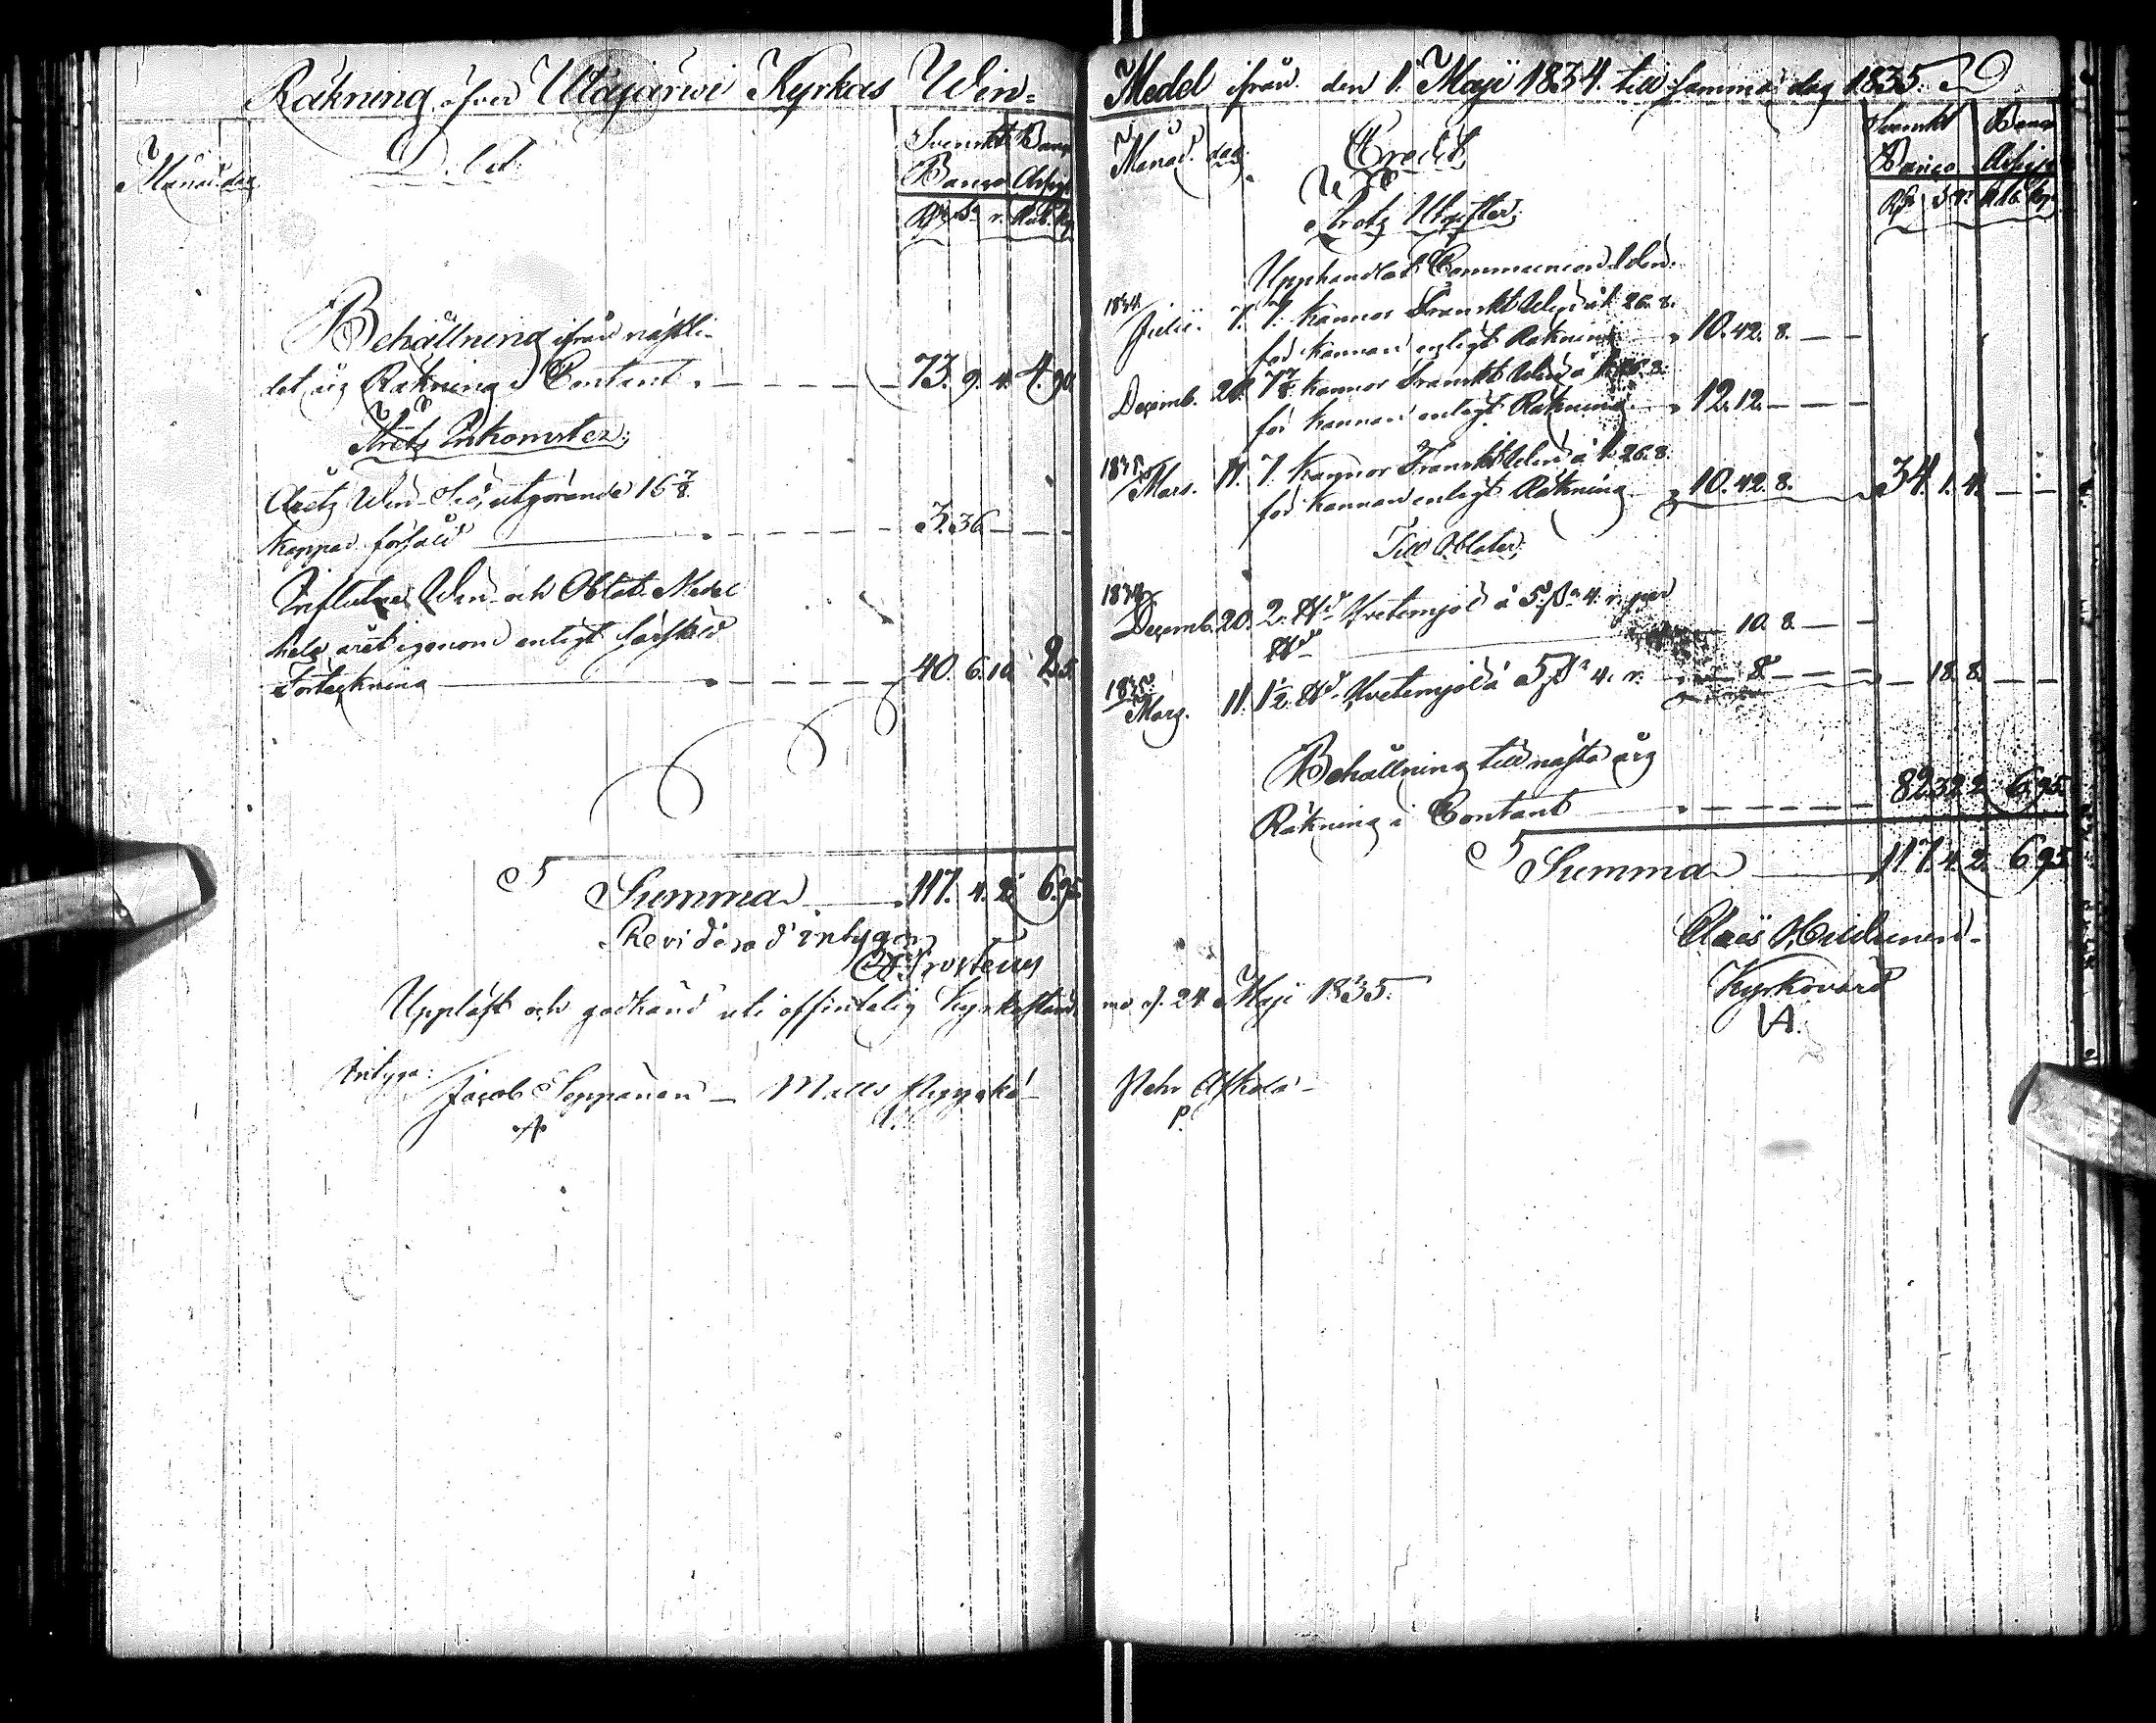 Räkning öfver Utajärwi Kyrkas Win-
Månad. dag.
Debet.
Svenskt Banco
Banco Assign.
Rdr. sk. r. Rub. Kop.
Behållning ifrån nästli-
det års Räkning i Contant. 73. 9. 4. 4. 90.
Årets Inkomster;
Årets Win-Säd, utgörande 16 7/8
kappar försåld 3. 36
Influtne Win- och Oblat-Medel
hela året igenom enligt särskild
Förteckning 40. 6. 10. 2. 5.
Summa 117. 4. 2. 6. 95.
Revideradt intygar
Frosterus
Uppläst och godkänd uti offentelig Kyrkostäm-
Intyga:
Jacob Seppänen - Matts
Medel ifrån den 1. Maji 1834. till samma dag 1835.
Månad. dag.
Credit
Svenskt Banco
Banco Assign.
Rdr. sk. r. Rub. Kop.
Årets Utgifter;
Upphandlat Communion Win.
1834.
Julii. 7. 7. kannor Franskt Win à 1. 26. 8.
för kannan enligt Räkning 10. 42. 8.
Decemb. 20. 7 7/8 kannor Franskt Win à 1. 26. 8.
för kannan enligt Räkning 12. 12.
1835.
Mars. 11. 7. kannor Franskt Win à 1. 26. 8.
för kannan enligt Räkning 10. 42. 8. 34. 1. 4.
Till Oblater;
1834.
Decemb. 20. 2. Hvetemjöl à 5. sk. 4. r. per
10. 8.
1835.
Mars. 11. 1 1/2 Hvetemjöl à 5 sk. 4. r. 8. 18. 8.
Behållning till nästa års
Räkning i Contant 82. 32. 2. 6. 95.
Summa 117. 4. 2. 6. 95.
Claes
Kyrkovärd
me d. 24 Maji 1835.
Pehr
P.